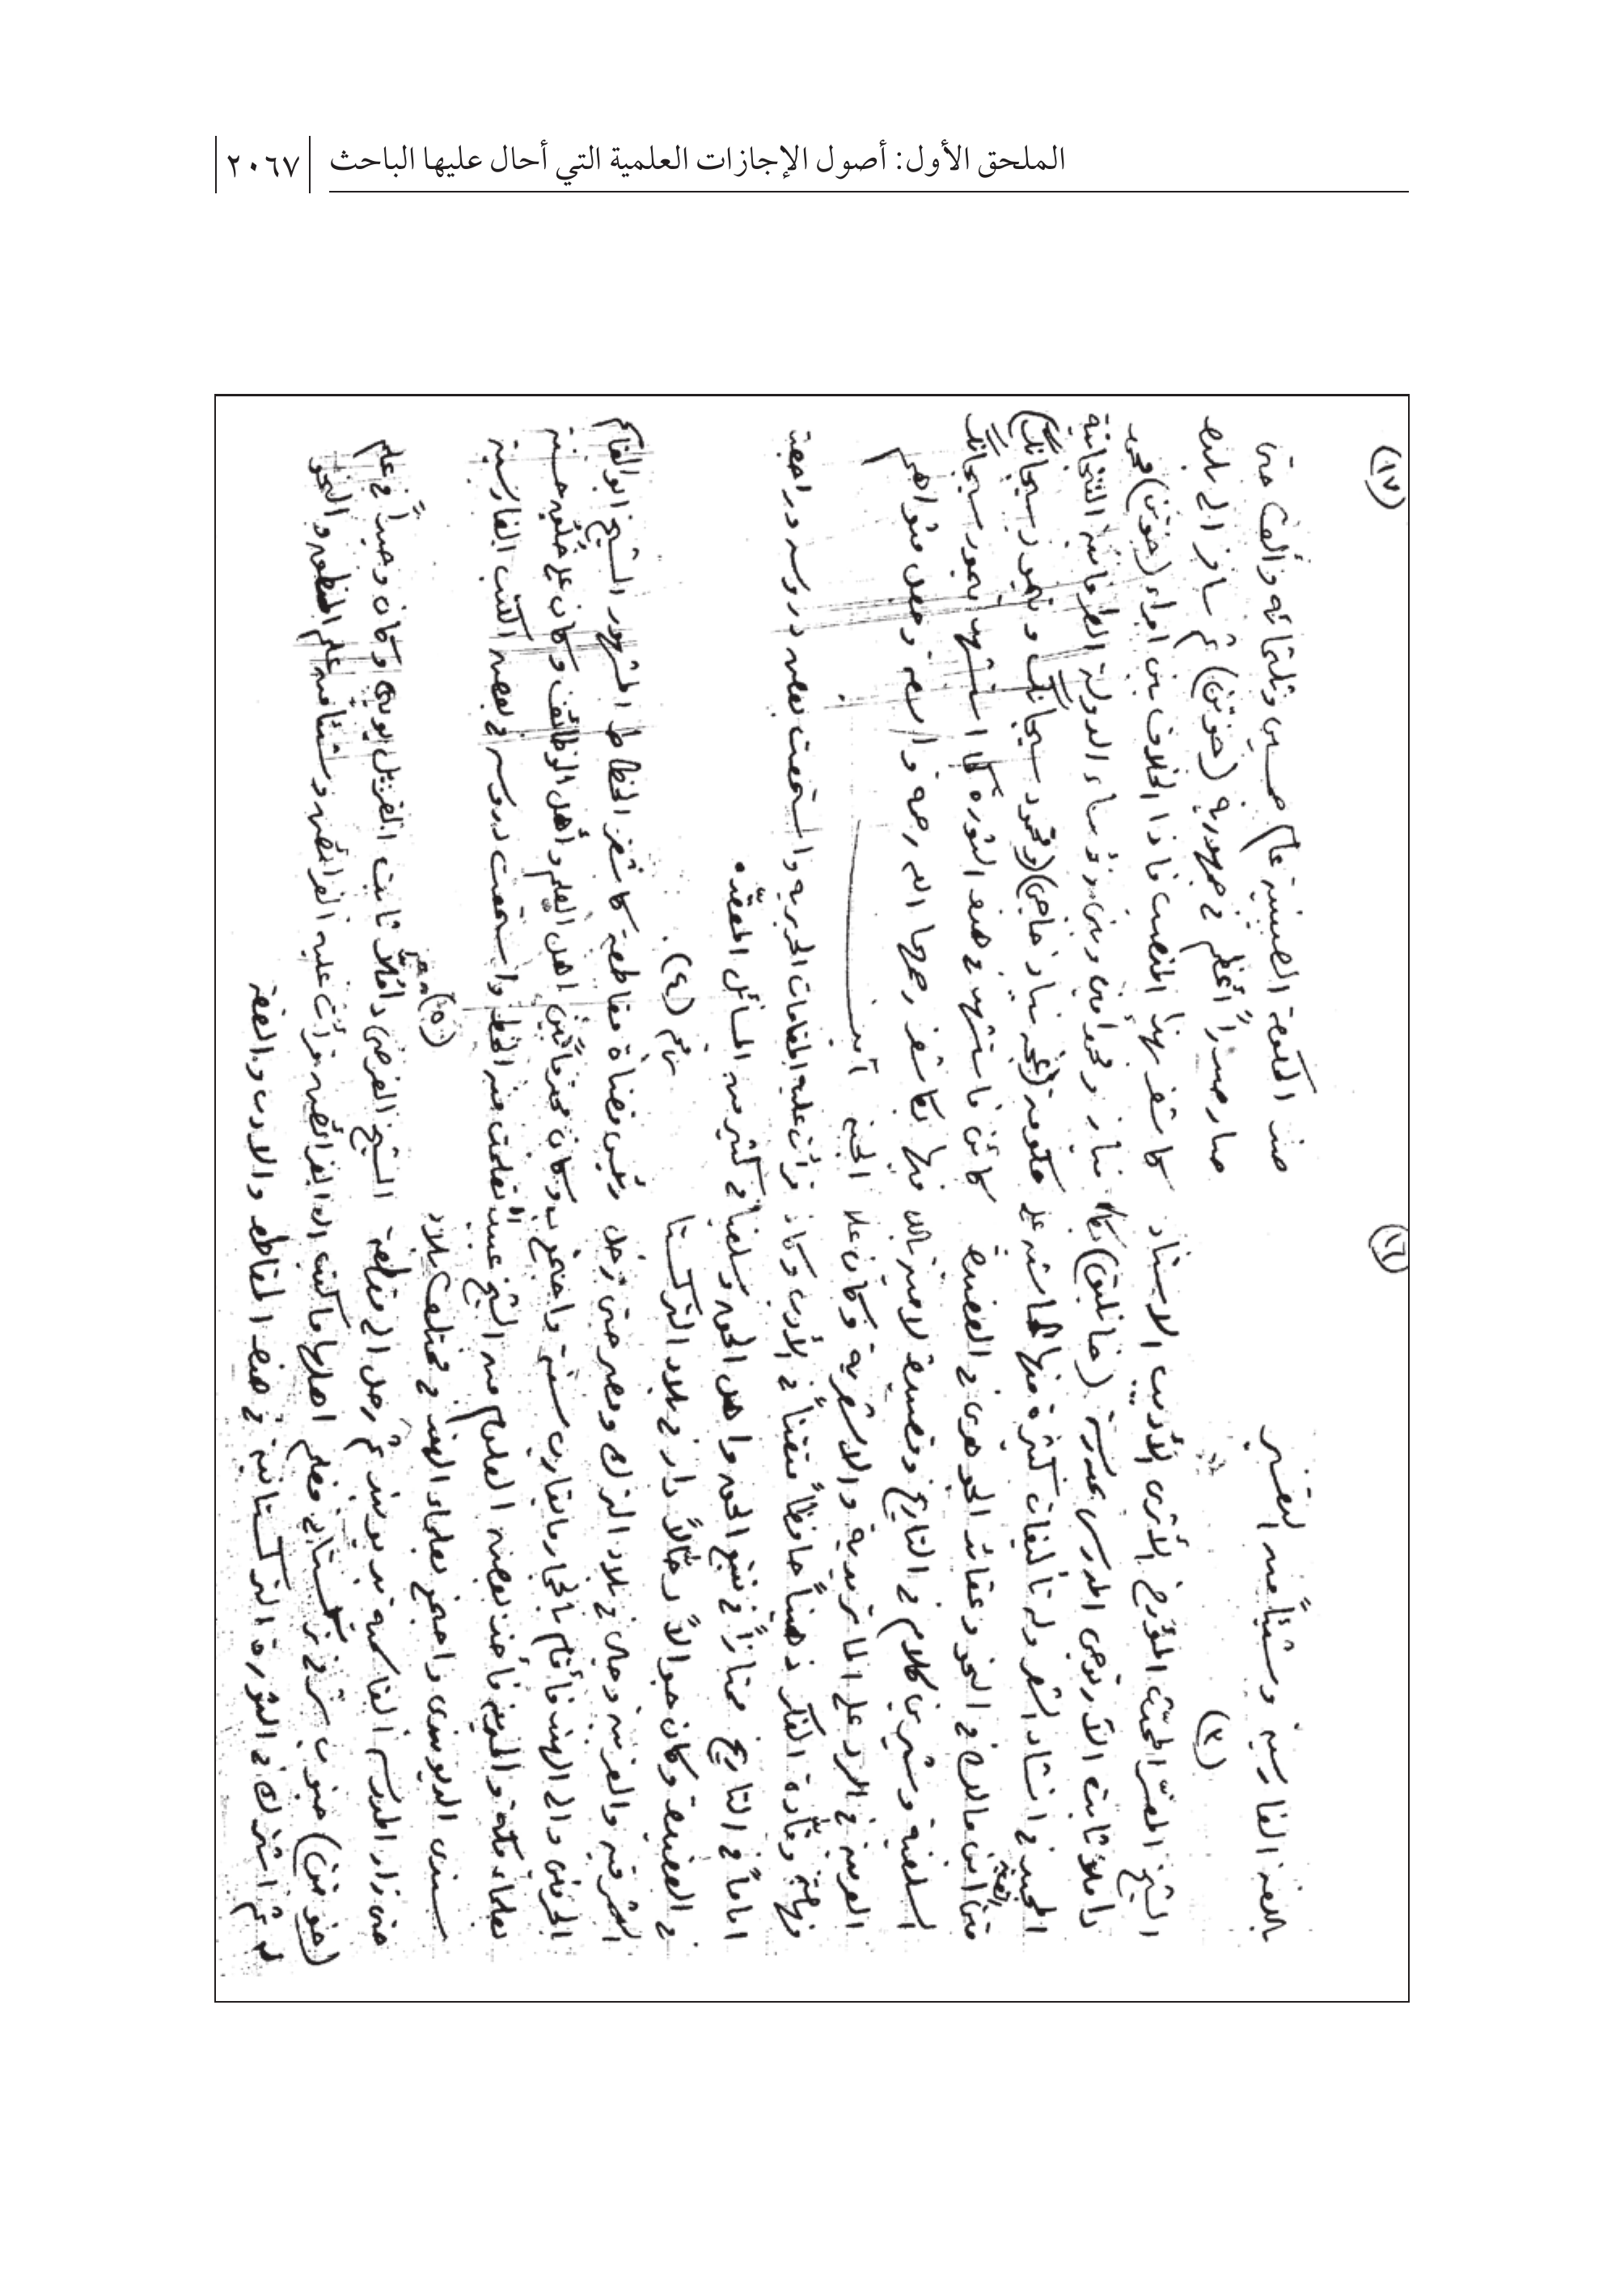 الملحق الأول: أصول الإجازات العلمية التي أحال عليها الباحث
٢٠٦٧
(١٦)
باللغة الفارسية وشيئاً من التفسير
(٣)
الشيخ المفسّر المحدّث المؤرخ الأثرى الأديب الاستاذ
داملا ثابت الآرتوجى المدرس بمدرسة (خانليق)
المجيد فى انشاد الشعر وله تأليفات كثيرة منها الحاشية على
متن الفية ابن مالك فى النحو وعقائد الجوهرى فى العقيدة
السلفية وشيرين كلام فى التاريخ وقصيدة لامية
العربية فى الرد على الماتريدية والاشعرية وكان علا
فهامة وقّادة الفكر ذهيناً حافظاً متقناً فى الأدب وكان
اماماً فى التاريخ ممتازاً فى تتبع الحق واهل الحق وسلفياً
فى العقيدة وكان جوالاً رحّالاً دار فى بلاد التركستا
الشرقية والغربية وجال فى بلاد الترك ومصر حتى دخل
الحرمين والى الهند فأقام بالحجاز ما يقارب سنة واجتمع ب
علماء مكة والمدينة فأخذ بعض العلوم من الشيخ عبيد الل
سندى الديوبندى واجتمع بعلماء الهند فى مختلف بلاد
حتى زار المدرسة القاسمية بديوبند ثم رحل الى مقاطعة
(خوتن) جنوب شرق تركستان فعلم اهلها ماكتب الله
له ثم اشترك فى الثورة التركستانية فى هذه المقاطعة
(١٧)
ضد الحكومة الصينية عام خمسين وثلثمائه وألف حتى
صار صدراً أعظم فى جمهورية (خوتن) ثم سافر الى بلده
كاشغر بهذا المنصب فاذا الخلاف بين امراء (خوتن) محمد
نياز ومحمد أمين وبين رؤساء الدولة الطرفانية
حكومة نياز حاجى (ومحمود سيجانك وتيمور سيجانك)
كائن فاستشهد فى هذه الثوره كما استشهد تيمور سيجانك
فيها بكاشغر رحمهما الله رحمة واسعة وجعل مثواهم
الجنة آمين
قرأت عليه المقامات الحريريه واستمعت بعض دروسه وراجعته
فى كثير من المسائل المعقّده.
رقم (٤)
رئيس قضاة مقاطعة كاشغر الخطاط المشهور الشيخ ابو القاسم
وكان محترماً بين اهل العلم وأهل الوظائف وكان على خلق حسنة
تعلمت منه الخط واستمعت دروسه فى بعض الكتب الفارسية
رقم (٥)
الشيخ الفرضى داملا ثابت القزيل بويى وكان وحيداً فى علم
الفرائض قرأت عليه الفرائض وشيئا من علم المنطق والنحو
والادب والفقه